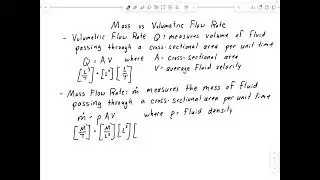 Mass vs Volumetric Flow Rate
- Volumetric Flow Rate Q: measures volume of fluid
passing through a cross-sectional area per unit time
Q = A V where A = cross-sectional area
[L³/T] = [L²] [L/T] V = average fluid velocity
- Mass Flow Rate: ṁ measures the mass of fluid
passing through a cross-sectional area per unit time
ṁ = ρ A V where ρ = fluid density
[M/T] = [M/L³] [L²] [